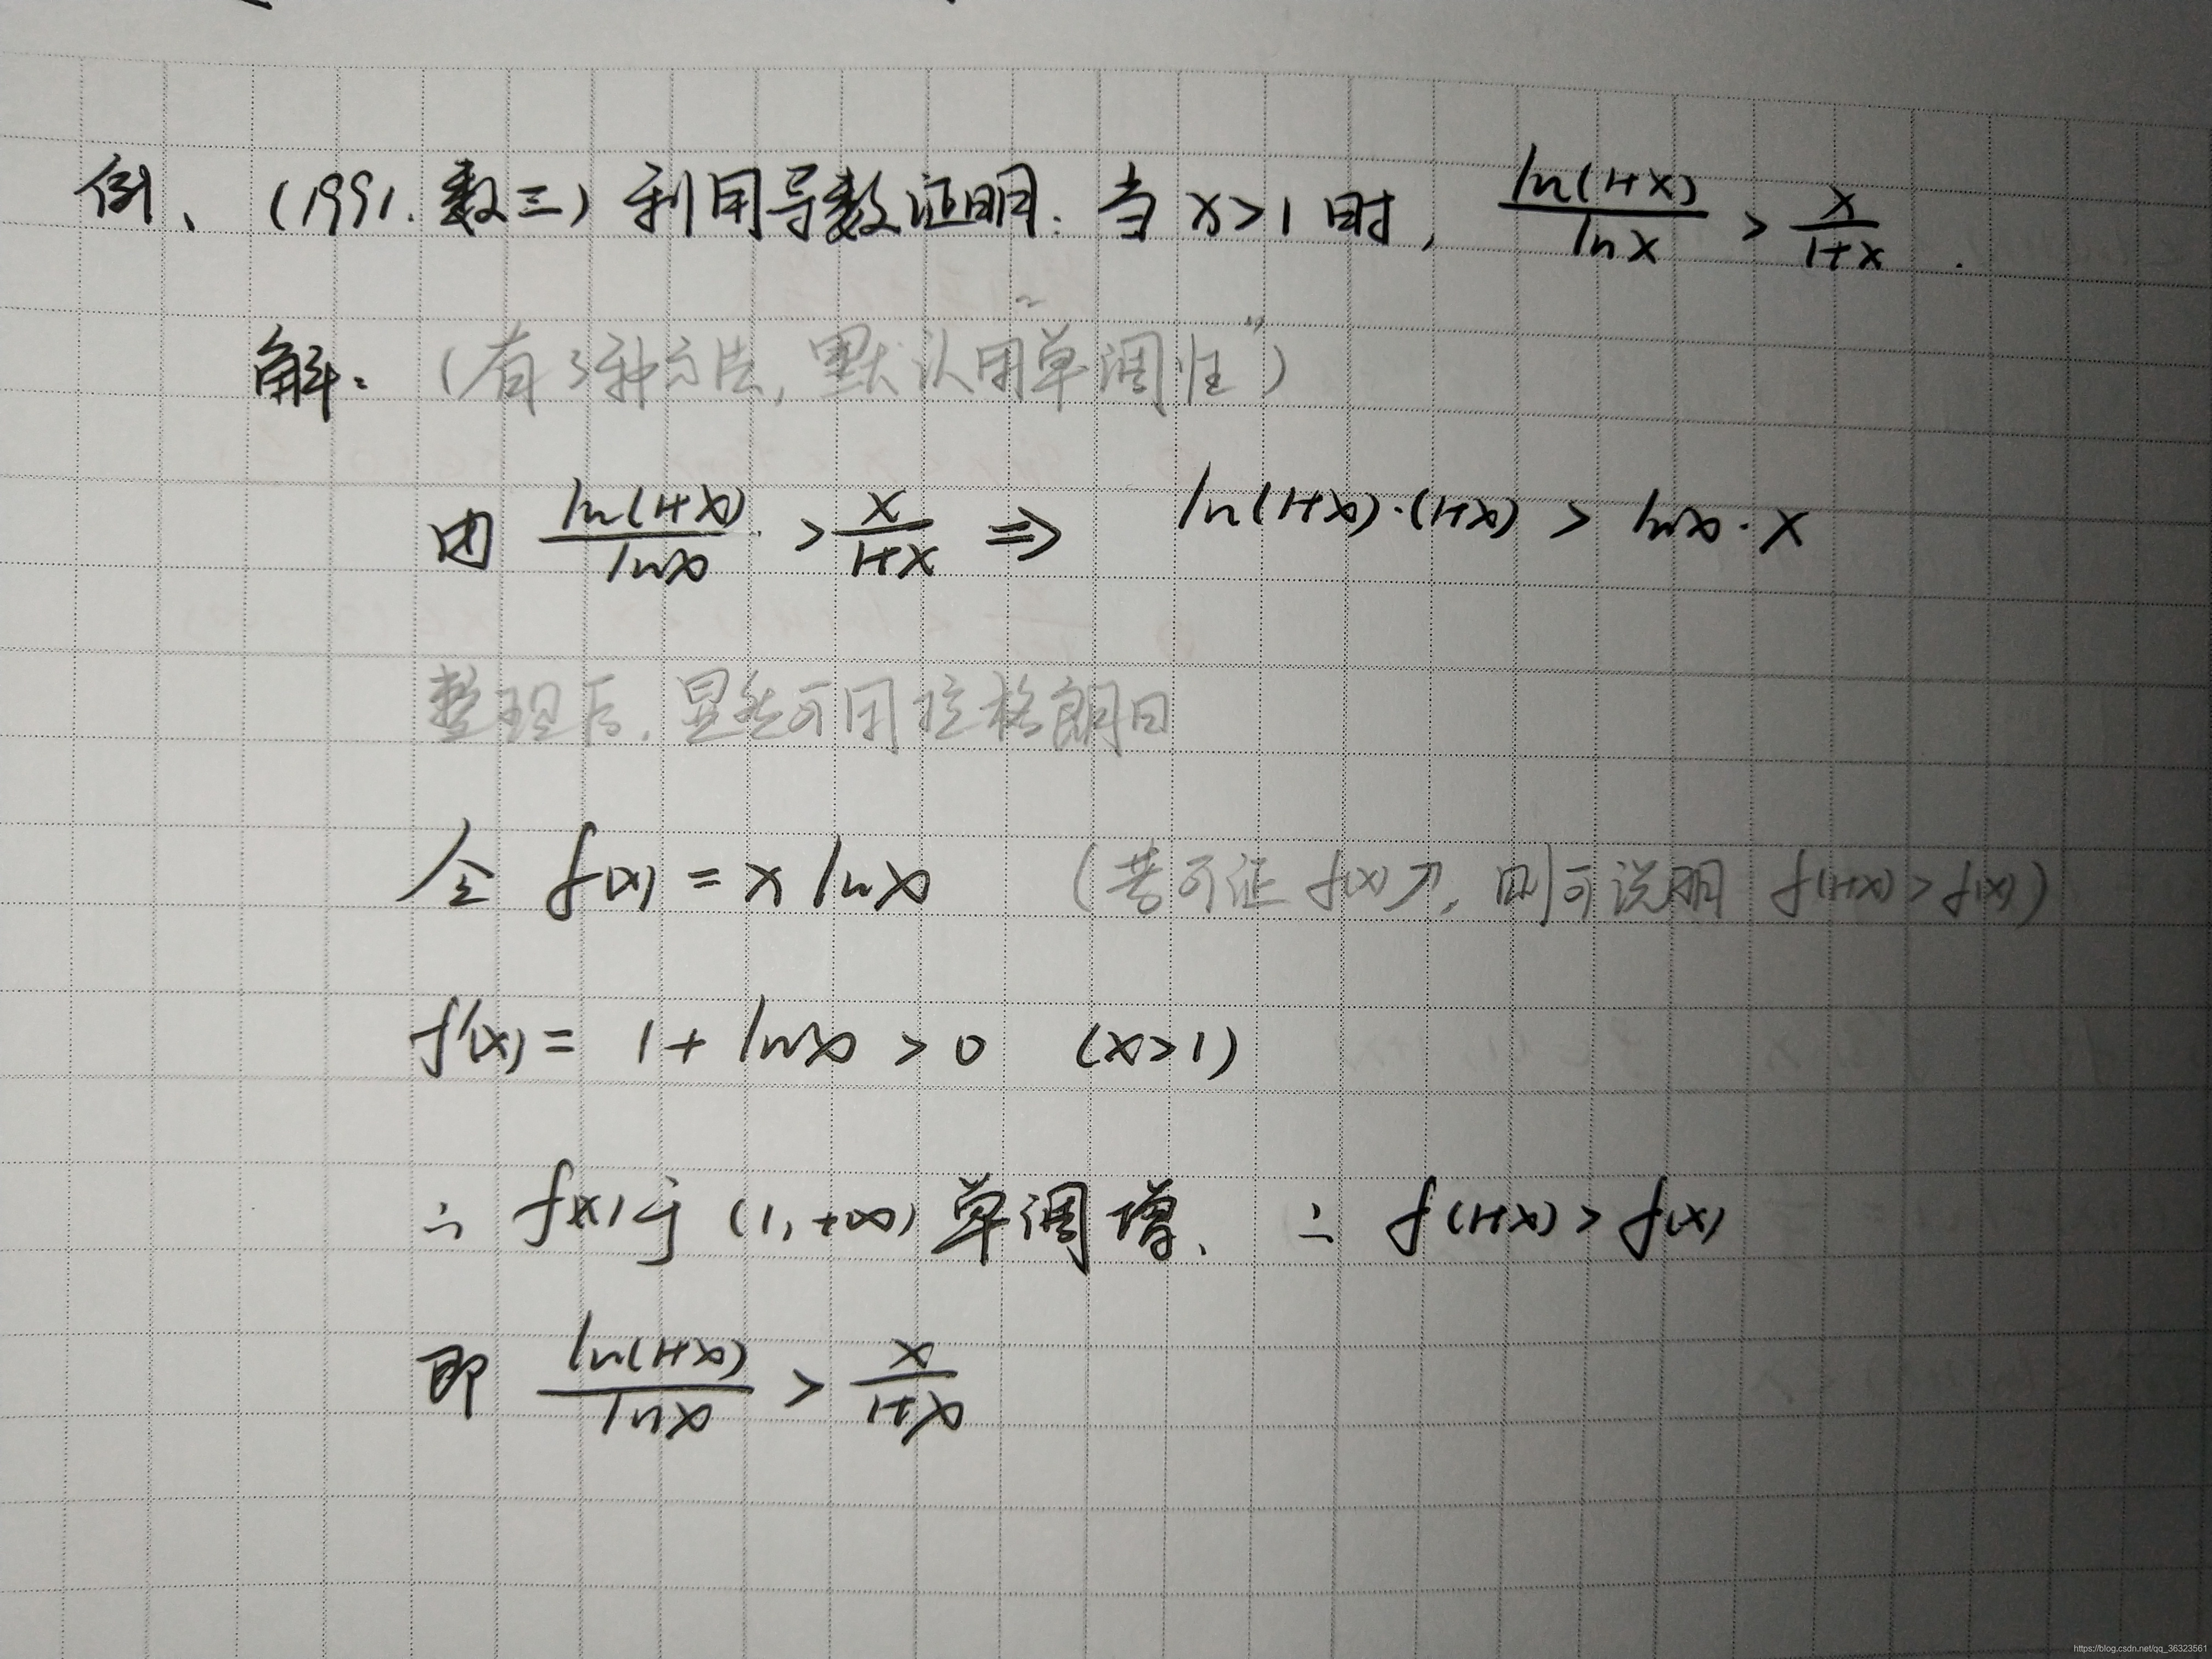 例、(1991.数三)利用导数证明:当 x>1 时, ln(1+x)/lnx > x/(1+x).
解: (有3种方法,默认用"单调性")
因 ln(1+x)/lnx > x/(1+x) ⇒ ln(1+x)·(1+x) > lnx·x
整理后,显然可用拉格朗日
令 f(x) = x lnx (若可证 f(x)↗, 则可说明 f(1+x)>f(x))
f'(x) = 1+ lnx > 0 (x>1)
∴ f(x)于 (1,+∞) 单调增, ∴ f(1+x) > f(x)
即 ln(1+x)/lnx > x/(1+x)
https://blog.csdn.net/qq_36323561